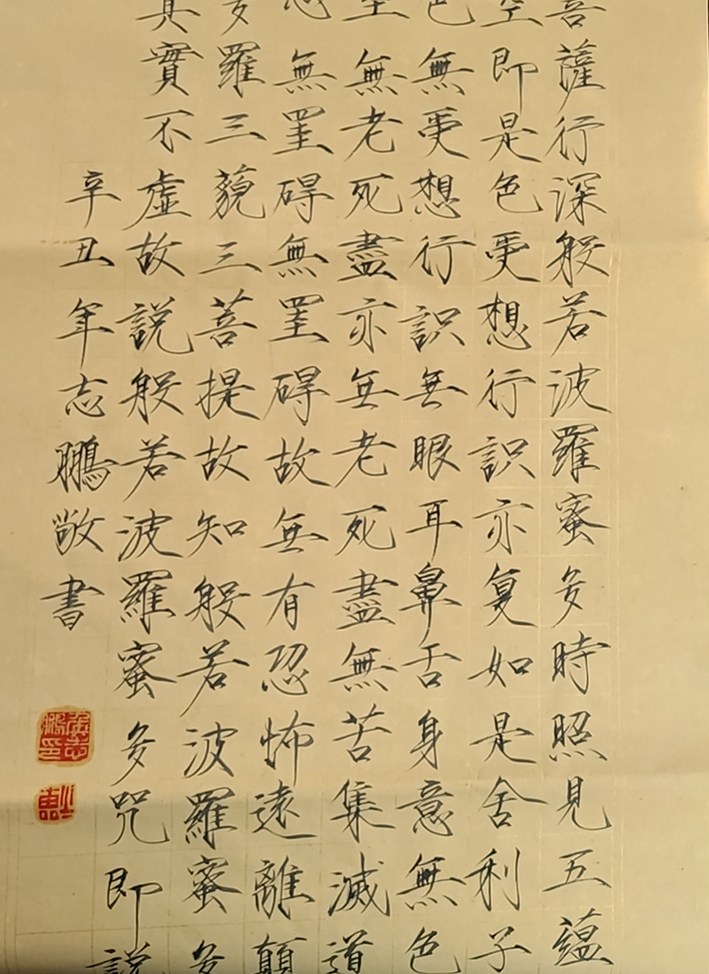 菩薩行深般若波羅蜜多時照見五蘊
空即是色受想行識亦复如是舍利子
色無受想行識無眼耳鼻舌身意無色
至無老死盡亦無老死盡無苦集滅道
無罣碍無罣碍故無有恐怖遠離顛
多羅三藐三菩提故知般若波羅蜜多
真實不虛故說般若波羅蜜多咒即說
辛丑年志鵬敬書
張志鵬印